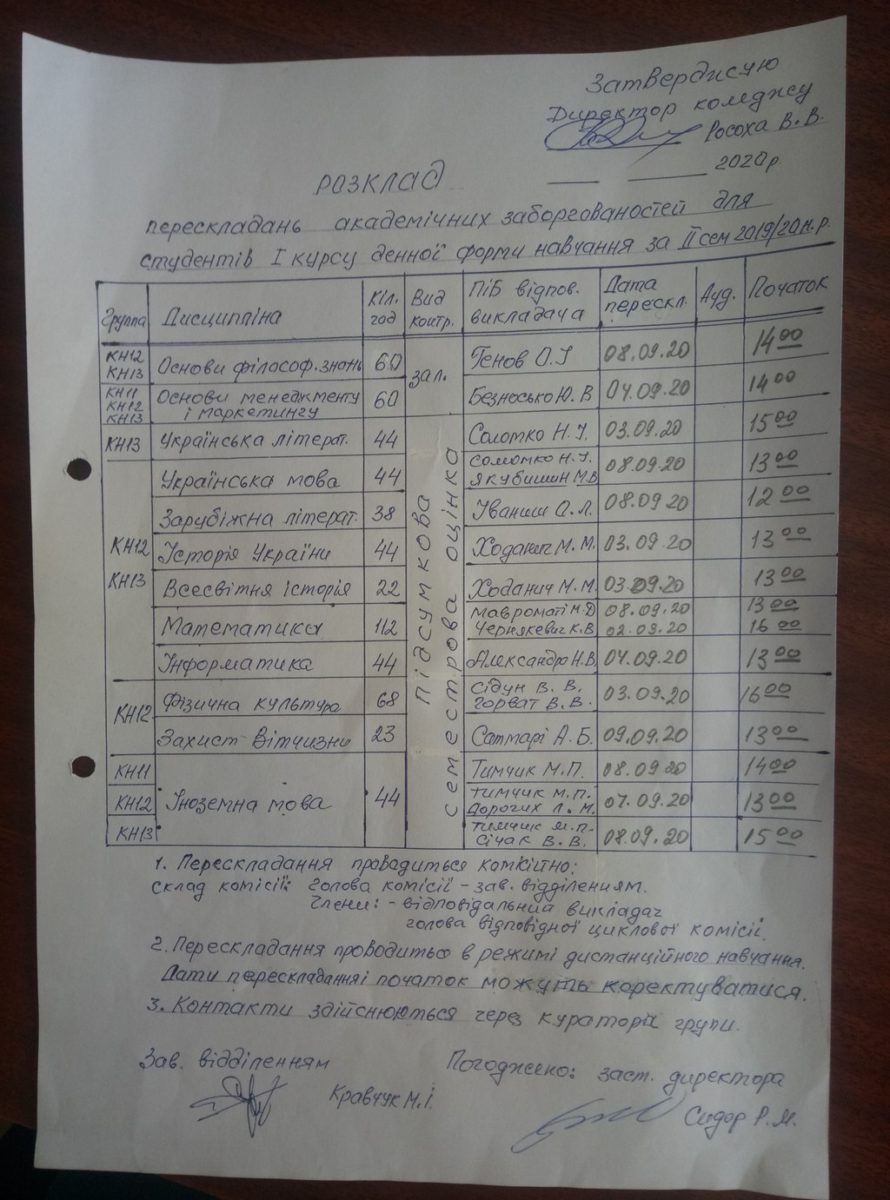 Затверджую
Директор коледжу
Росоха В.В.
2020р.
РОЗКЛАД
перескладань академічних заборгованостей для
студентів I курсу денної форми навчання за II сем 2019/20 н.р.
Группа Дисципліна Кіл. год Вид контр. ПІБ відпов. викладача Дата перескл. Ауд. Початок
КН12 КН13 Основи філософ. знань 60 зал. Генов О.І 08.09.20 14 00
КН11 КН12 КН13 Основи менеджменту і маркетингу 60 Безносько Ю.В 04.09.20 14 00
КН13 Українська літерат. 44 Підсумкова семестрова оцінка Соломко Н.І. 03.09.20 15 00
КН12 КН13 Українська мова 44 Соломко Н.І. Якубишин М.В. 08.09.20 13 00
Зарубіжна літерат. 38 Іваниш О.Л. 08.09.20 12 00
Історія України 44 Ходанич М.М. 03.09.20 13 00
Всесвітня історія 22 Ходанич М.М. 03.09.20 13 00
Математика 112 Мавроматі М.Д 08.09.20 13 00
Чернякевич К.В. 02.09.20 16 00
Інформатика 44 Александро Н.В. 04.09.20 13 00
КН12 Фізична культура 68 Сідун В.В. Горват В.В. 03.09.20 16 00
Захист Вітчизни 23 Саттарі А.Б. 09.09.20 13 00
КН11 Іноземна мова 44 Тимчик М.П. 08.09.20 14 00
КН12 Тимчик М.П. Дорогих Л.М. 07.09.20 13 00
КН13 Тимчик М.П. Січак В.В. 08.09.20 15 00
1. Перескладання проводиться комісійно:
склад комісії: голова комісії - зав. відділенням.
Члени: - відповідальний викладач
голова відповідної циклової комісії.
2. Перескладання проводиться в режимі дистанційного навчання.
Дати перескладання і початок можуть коректуватися.
3. Контакти здійснюються через кураторів групи.
Зав. відділенням
Кравчук М.І.
Погоджено: заст. директора
Сидор Р.М.